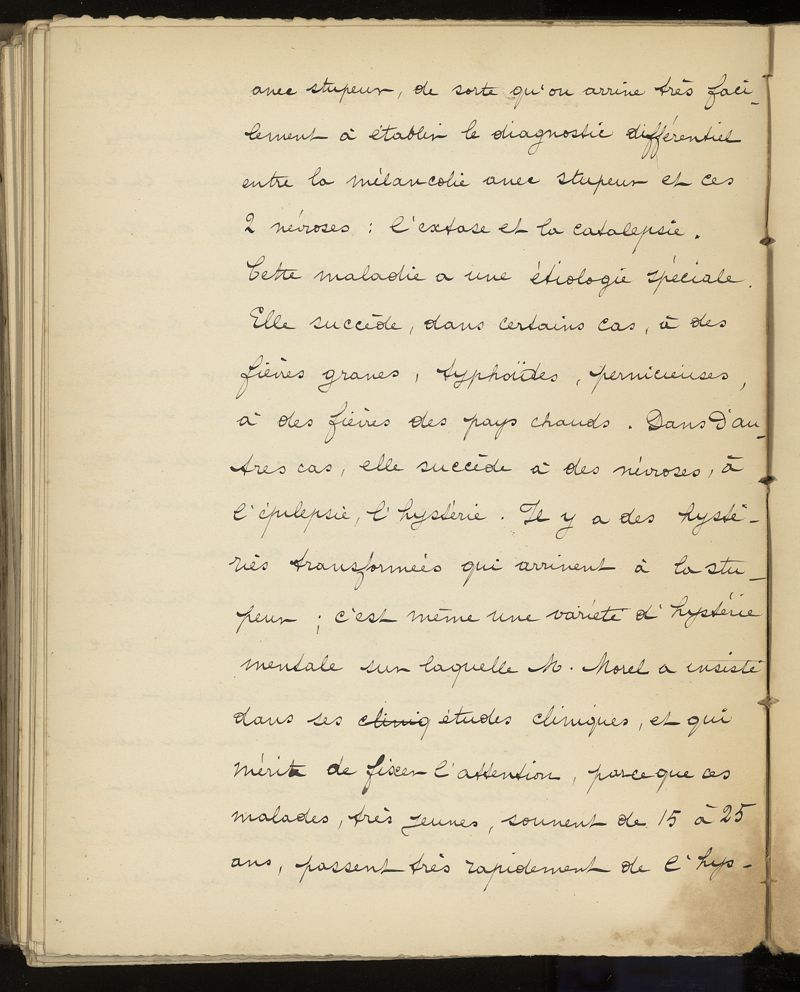 avec stupeur, de sorte qu'on arrive très faci-
lement à établir le diagnostic différentiel
entre la mélancolie avec stupeur et ces
2 névroses : l'extase et la catalepsie.
Cette maladie a une étiologie spéciale.
Elle succède, dans certains cas, à des
fièvres graves, typhoïdes, pernicieuses,
à des fièvres des pays chauds. Dans d'au-
tres cas, elle succède à des névroses, à
l'épilepsie, l'hystérie. Il y a des hysté-
ries transformées qui arrivent à la stu-
peur ; c'est même une variété d'hystérie
mentale sur laquelle M. Morel a insisté
dans ses cliniq études cliniques, et qui
mérite de fixer l'attention, parce que ces
malades, très jeunes, souvent de 15 à 25
ans, passent très rapidement de l'hys-